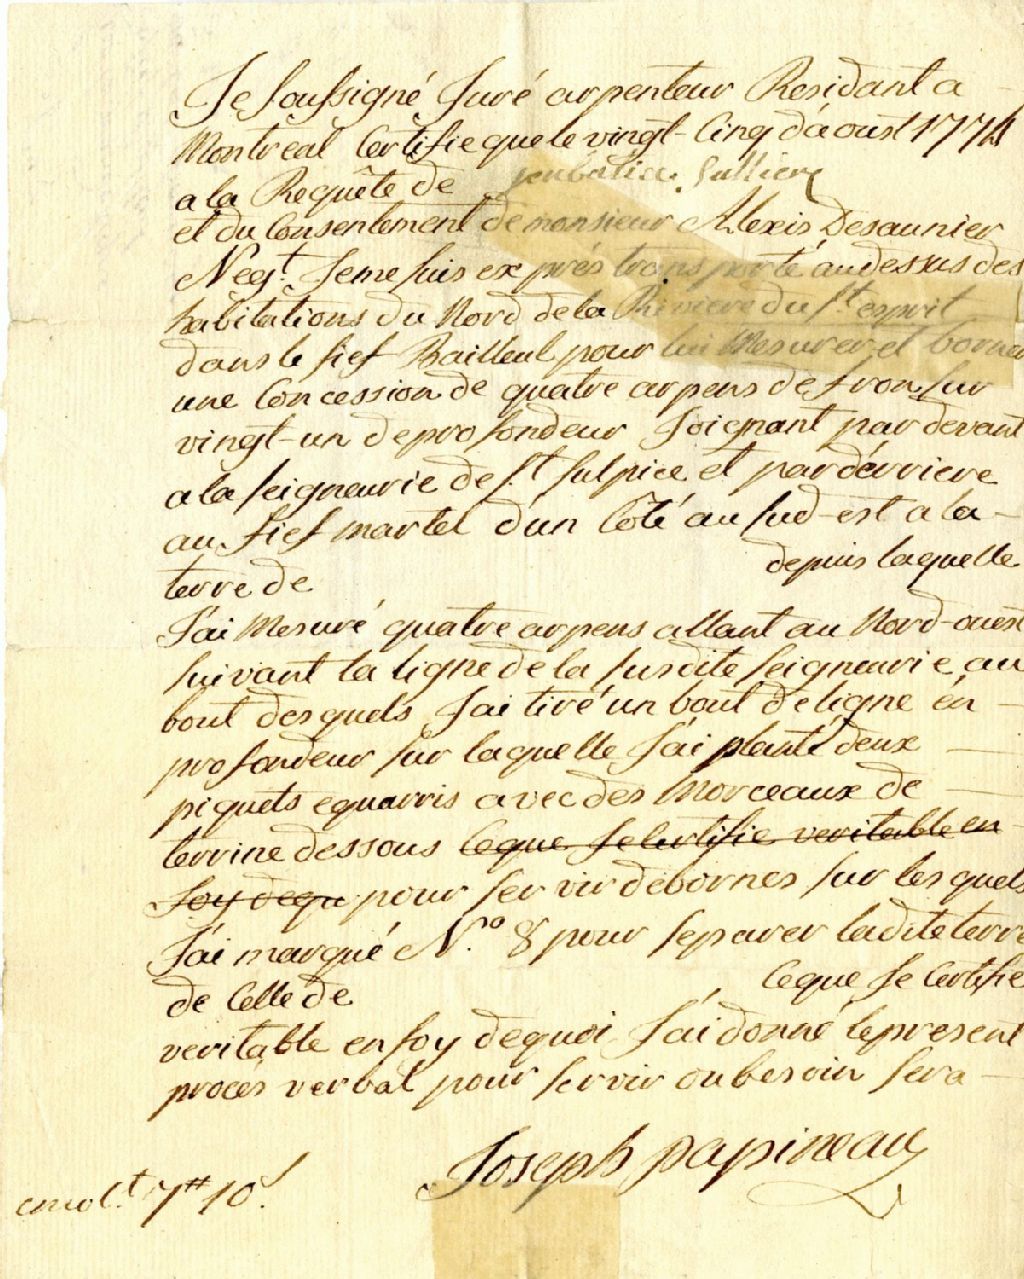 Je Soussigné Juré arpenteur Residant a
Montreal Certifie que le vingt-Cinq d'aoust 1774
a la Requête de
et du Consentement de monsieur Alexis Desaunier
Negt. Je me suis exprés transporté audessus des
habitations du Nord de la Riviere du St. esprit
dans le fief Bailleul pour lui Mesurer et borner
une Concession de quatre arpens de fron sur
vingt-un de profondeur Joignant par devant
a la seigneurie de St. sulpice et par dérriere
au fief martel d'un Côté au sud-est a la
terre de depuis laquelle
J'ai Mesuré quatre arpens allant au Nord-ouest
suivant la ligne de la susdite seigneurie, au
bout desquels J'ai tiré un bout de ligne én
profondeur sur laquelle J'ai planté deux
piquets equarris avec des Morceaux de
terrine dessous Ceque Je Certifie veritable en
foy dequ pour servir de bornes sur lesquels
J'ai marqué N.o 8 pour separer ladite terre
de Celle de Ceque Je Certifie
veritable en foy dequoi J'ai donné le present
procès verbal pour servir ou besoin sera
Joseph papineau
7tt 10s